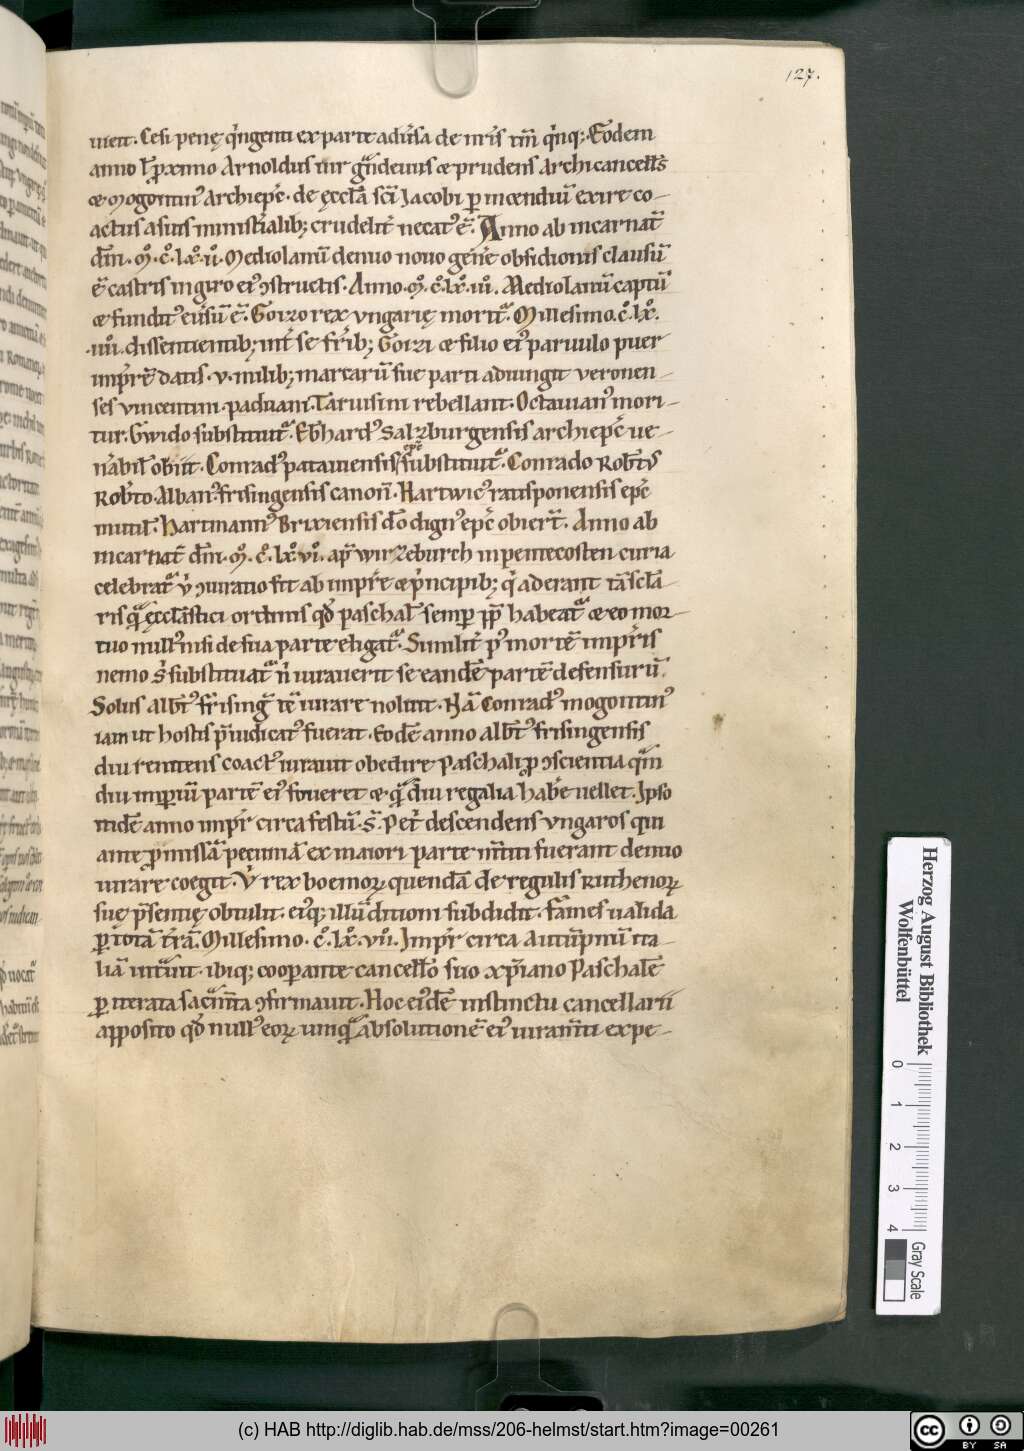 127.
uett. Cesi penę q̓ngenti ex parte adũsa de nr̃is tm̃ q̓nq;. Eodem
anno ł ꝓximo Arnoldus uir gͣndeuus & prudens archicancelł's
& mogontin᷒ archiepc̃. de ęccła sc̃i Jacobi ꝑ incendiũ exire co-
actus a suis ministialib; crudelit̃ necat᷒ ẽ. Anno ab incarnat̃
dm̃. m̊. c̊. lx̊. ii̊. Mediolanũ denuo nouo gen̓e obsidionis clausũ
ẽ castris in giro ei᷒ ꝯstructis. Anno. m̊. c̊. lx̊. iii̊. Mediolanũ captũ
& fundit᷒ eũsũ ẽ. Goizo rex vngarię moritᷣ. Millesimo. c̊. lx̊.
.iiii̊. dissentientib; int̃ se fr̃ib; Goizi & filio ei᷒ paruulo puer
imp̃re datis .v. milib; marcarũ sue parti adiungit veronen-
ses vincentini. paduani. Taruisini rebellant. Octauian᷒ mori-
tur. Gwido substituitᷣ. Ebhard᷒ Salzburgensis archiepc̃ ue-
n̓abił obiit. Conrad᷒ patauiensis epc̃ substituitᷣ. Conrado Robt᷒
Robto. Alban᷒ frisingensis canoñ. Hartwic᷒ ratisponensis epc̃
mutił. Hartmann᷒ Brixiensis dõ dign᷒ epc̃ obier̃t. Anno ab
incarnat̃ dm̃. m̊. c̊. lx̊. vi̊. ap̃ wirzeburch in pentecosten curia
celebratᷣ v̓ ꝯiuratio fit ab imp̃re & p̓ncipib; q̓ aderant tã scła-
ris qͣ̃ ęccłastici ordinis qd̃ paschał semꝑ pp̃ habeatᷣ & eo mor-
tuo null᷒ nisi de sua parte eligatᷣ. Similit̃ p᷒ mortẽ imp̃ris
nemo s̓ substituatᷣ n̓ iurauerit se eandẽ partẽ defensurũ.
Solus albt̃ frising̃ tẽ iurare noluit. Nã Conrad᷒ mogontin᷒
iam ut hostis p̃iudicat᷒ fuerat. Eodẽ anno albt᷒ frisingensis
diu renitens coact᷒ iurauit obedire Paschali ꝓ ꝯscientia qͣm
diu imꝑiũ partẽ ei᷒ foueret & qͣ̃ diu regalia hab̓e uellet. Ipso
itidẽ anno imp̃r circa festũ. s̃. Pet̃ descendens vngaros qui
ante ꝓmissã pecuniã ex maiori parte m̃titi fuerant denuo
iurare coegit. V̓ rex boemoꝝ quendã de regulis Ruthenoꝝ
suę p̃sentię obtulit. ei᷒q; illũ ditioni subdidit. fames ualida
ꝑ totã t̃rã. Millesimo. c̊. lx̊. vii̊. Imp̃r circa Autũpnũ ita-
liã intͣuit. ibiq; cooperante cancelło suo xp̃iano Paschalẽ
ꝑ iterata sacm̃ta ꝯfirmauit. Hoc ei᷒dẽ instinctu cancellarii
apposito qd̃ null᷒ eoꝝ unqͣ̃ absolutionẽ ei᷒ iuram̃ti expe-
Herzog August Bibliothek
Wolfenbüttel
0 1 2 3 4
Gray Scale
(c) HAB http://diglib.hab.de/mss/206-helmst/start.htm?image=00261
cc BY SA